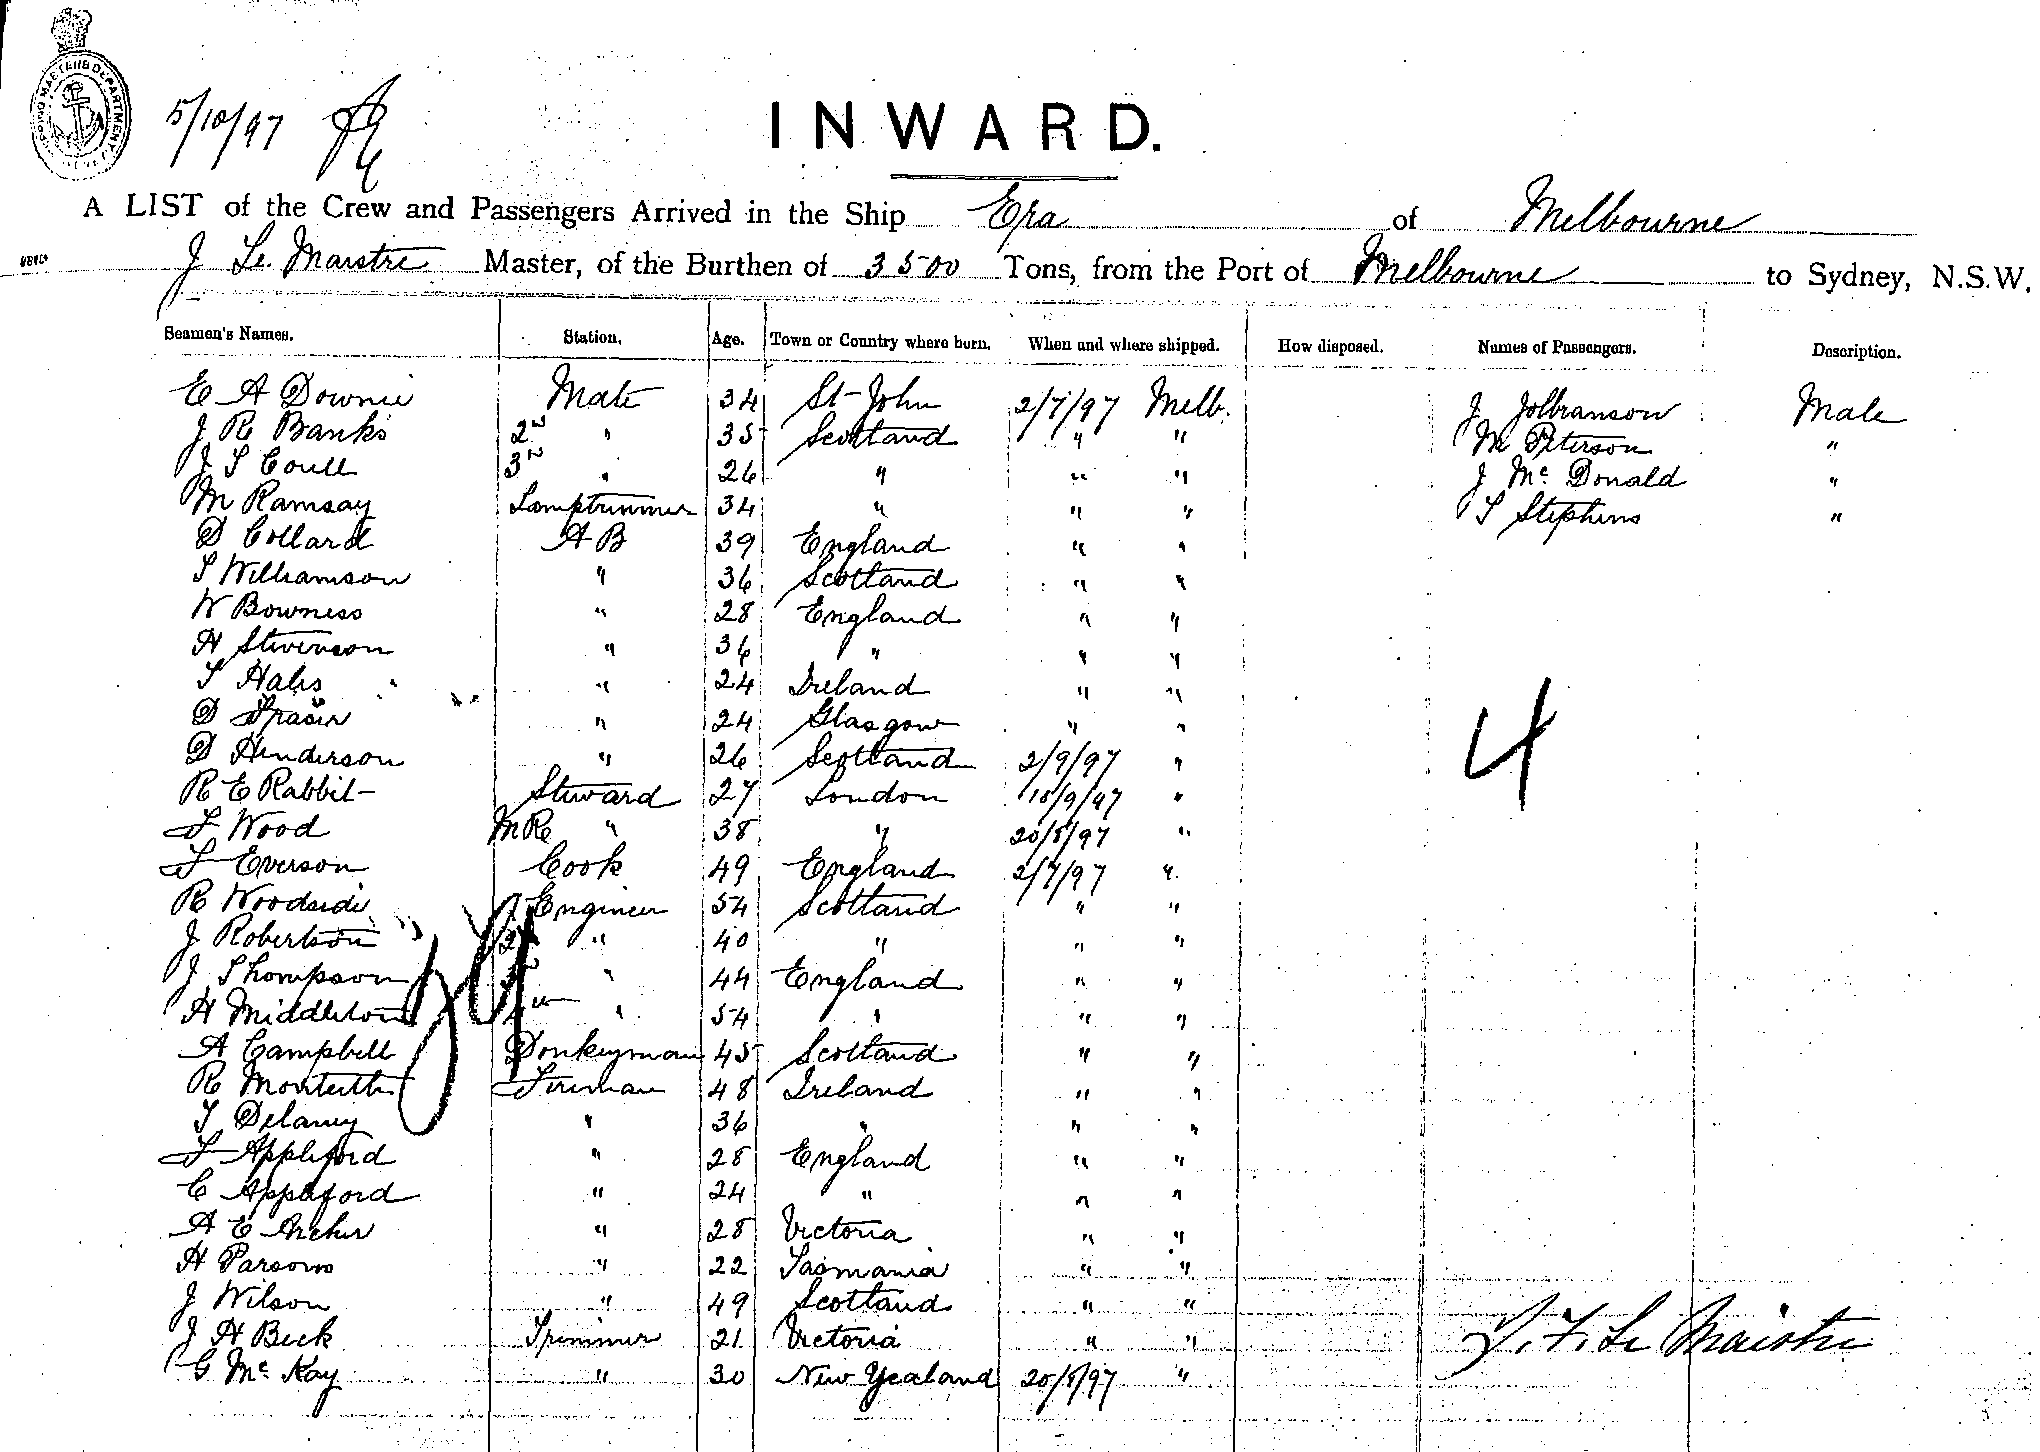 SHIPPING MASTER'S DEPARTMENT
5/10/97
INWARD.
A LIST of the Crew and Passengers Arrived in the Ship Era of Melbourne
J Le. Maistre Master, of the Burthen of 3500 Tons, from the Port of Melbourne to Sydney, N.S.W.
Seamen's Names. Station. Age. Town or Country where born. When and where shipped. How disposed. Names of Passengers. Description.
E A Downie Mate 34 St John 2/7/97 Melb. J Jolbranson Male
J R Banks 2nd " 35 Scotland " " M Peterson "
J S Coull 3rd " 26 " " " J Mc Donald "
M Ramsay Lamptrimmer 34 " " " S Stephens "
D Collard A B 39 England " "
S Williamson " 36 Scotland " "
W Bowness " 28 England " "
H Stevenson " 36 " " "
S Hales " 24 Ireland " "
D Fraser " 24 Glasgow " "
D Henderson " 26 Scotland 2/9/97 "
R E Rabbit Steward 27 London 18/9/97 "
F Wood M R " 38 " 20/8/97 "
F Everson Cook 49 England 2/7/97 "
R Woodside 1 Engineer 54 Scotland " "
J Robertson 2nd " 40 " " "
J Thompson 3rd " 44 England " "
H Middleton 4th " 54 " " "
A Campbell Donkeyman 45 Scotland " "
R Monteith Fireman 48 Ireland " "
T Delaney " 36 " " "
F Appleford " 28 England " "
C Appleford " 24 " " "
A E Archer " 28 Victoria " "
H Parsons " 22 Tasmania " "
J Wilson " 49 Scotland " "
J H Beck Trimmer 21 Victoria " "
G Mc Kay " 30 New Zealand 20/8/97 "
4
29
J. F. Le Maistre